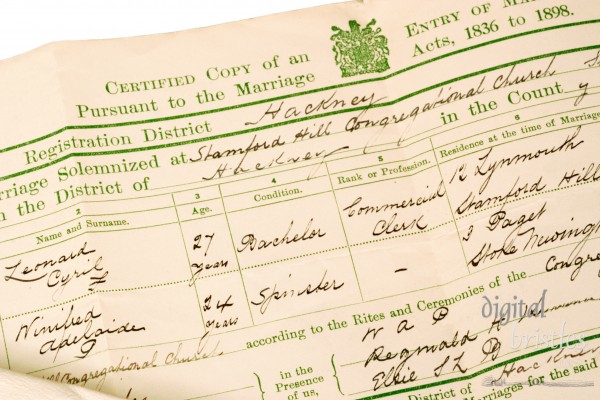 CERTIFIED COPY OF AN ENTRY OF MA
PURSUANT TO THE MARRIAGE ACTS, 1836 TO 1898.
Registration District Hackney
rriage Solemnized at Stamford Hill Congregational Church
n the District of Hackney in the County
2 3 4 5 6
Name and Surname. Age. Condition. Rank or Profession. Residence at the time of Marriage
Leonard Cyril 27 years Bachelor Commercial Clerk 12 Lynmouth Stamford Hill
Winifred Adelaide G 24 years Spinster – 3 Paget Stoke Newing
according to the Rites and Ceremonies of the Congre
ill Congregational Church
in the Presence of us,
W A P
Reginald H
Elsie S L P
District of Hackney
Marriages for the said
digital bristles